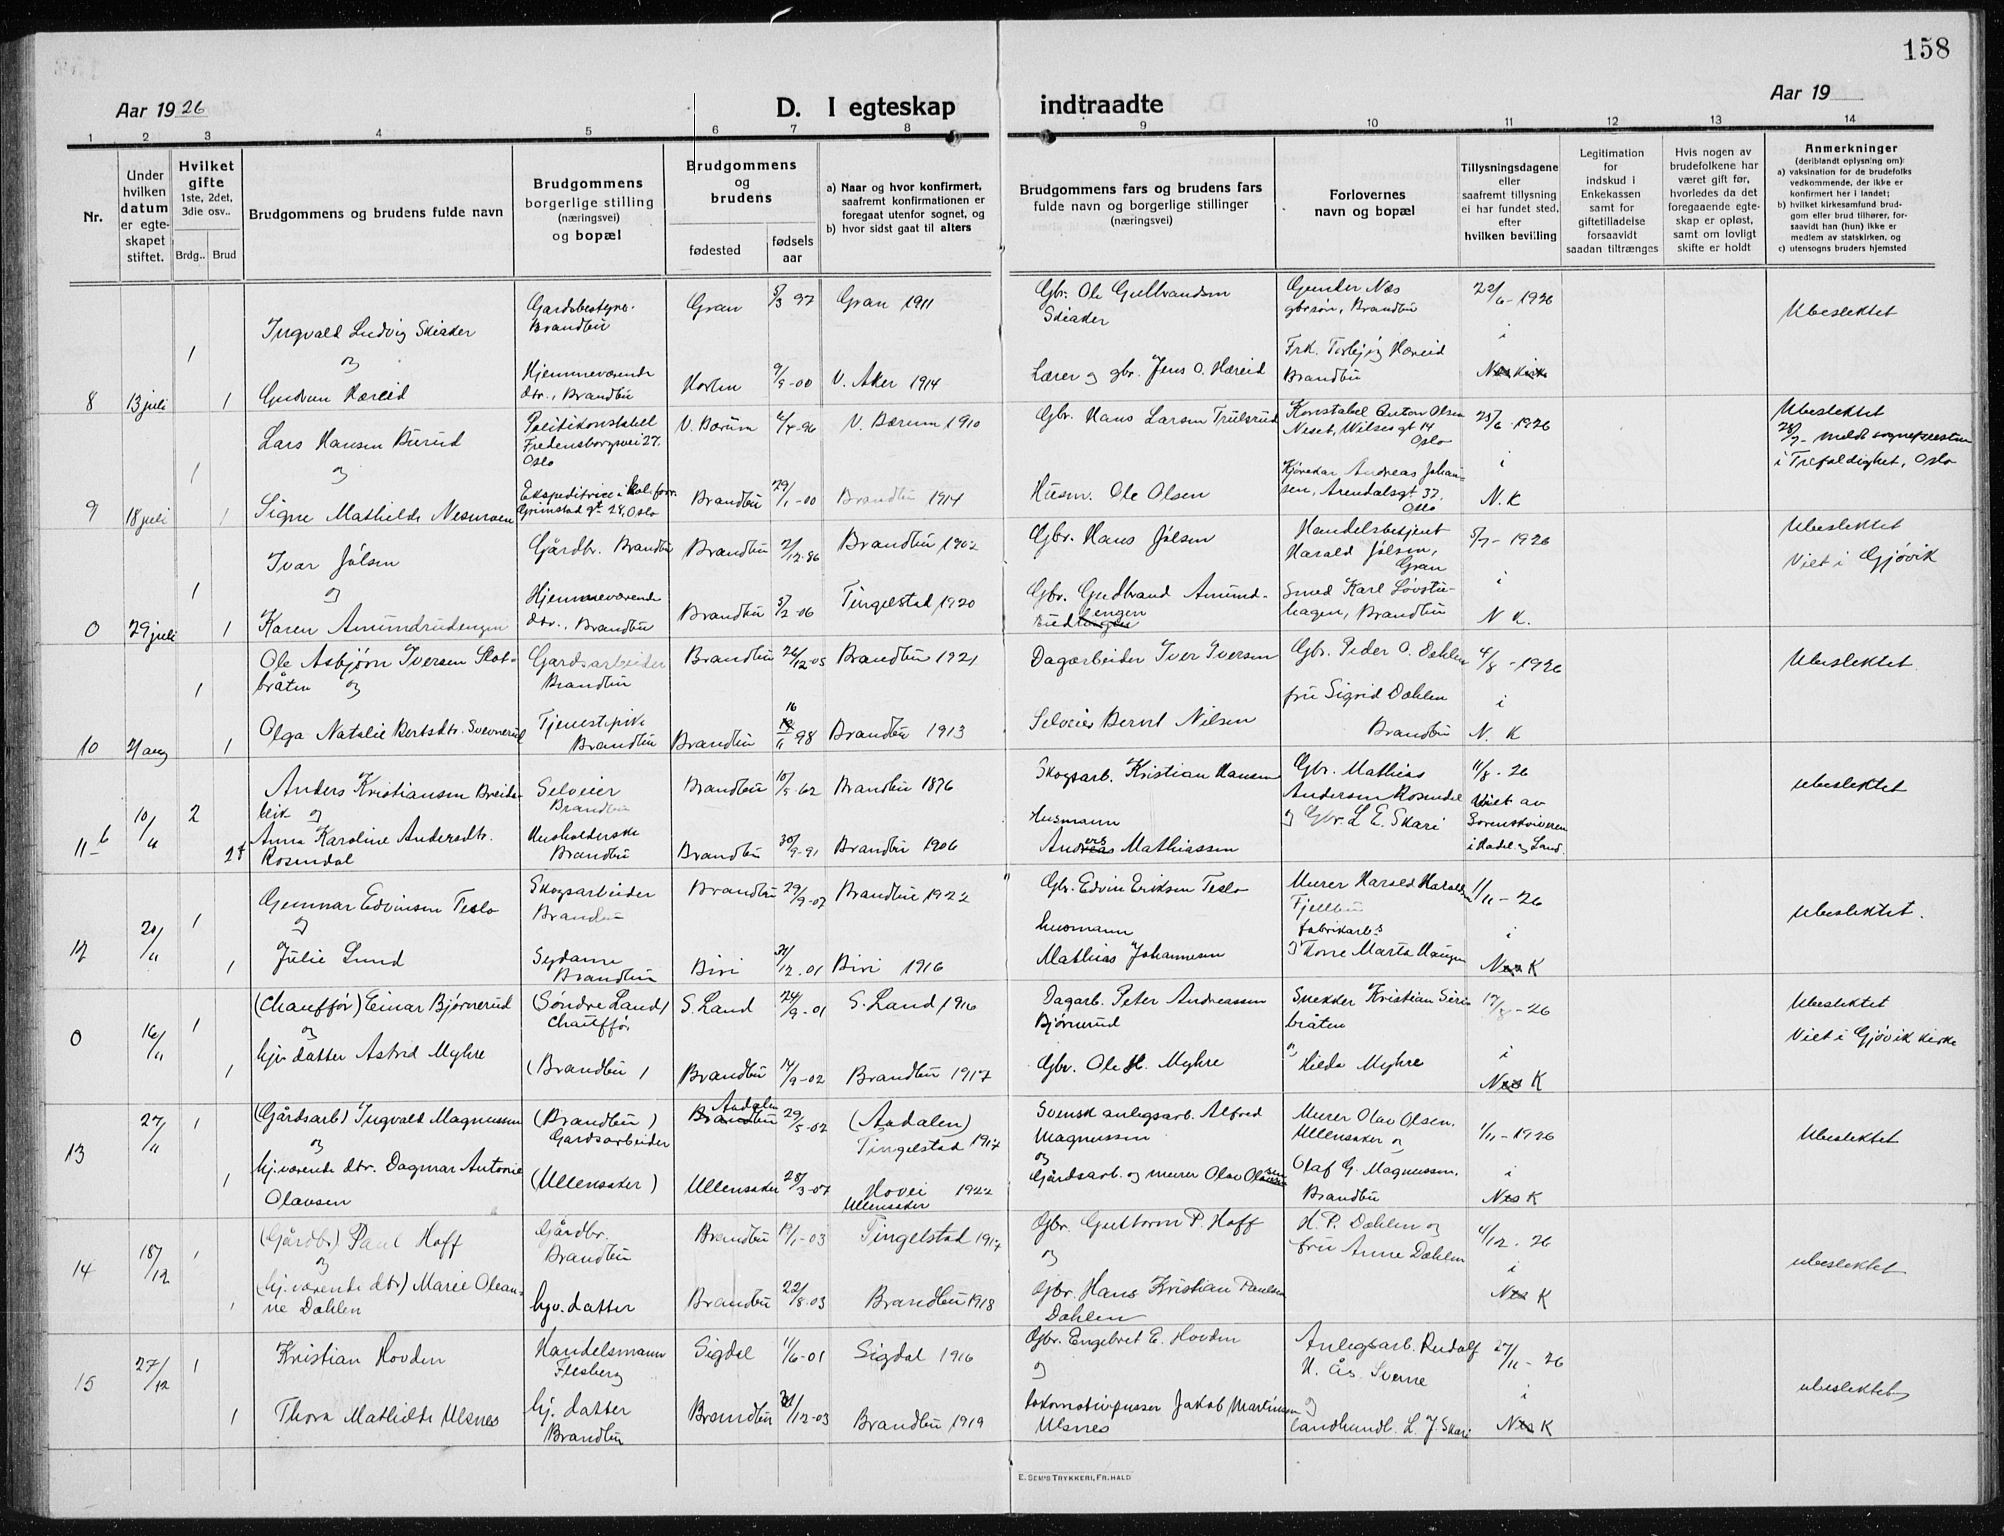 158
Aar 1926
D. I egteskap
indtraadte
Aar 19
1 2 3 4 5 6 7 8 9 10 11 12 13 14
Nr.
Under hvilken datum er egteskapet stiftet.
Hvilket gifte
1ste, 2det, 3die osv..
Brdg.. Brud
Brudgommens og brudens fulde navn
Brudgommens borgerlige stilling (næringsvei) og bopæl
Brudgommens og brudens
fødested
fødsels aar
a) Naar og hvor konfirmert, saafremt konfirmationen er foregaat utenfor sognet, og
b) hvor sidst gaat til alters
Brudgommens fars og brudens fars fulde navn og borgerlige stillinger (næringsvei)
Forlovernes navn og bopæl
Tillysningsdagene eller saafremt tillysning ei har fundet sted, efter hvilken bevilling
Legitimation for indskud i Enkekassen samt for giftetilladelse forsaavidt saadan tiltrænges
Hvis nogen av brudefolkene har været gift før, hvorledes da det foregaaende egteskap er opløst, samt om lovligt skifte er holdt
Anmerkninger
(deriblandt oplysning om):
a) vaksination for de brudefolks vedkommende, der ikke er konfirmert her i landet;
b) hvilket kirkesamfund brudgom eller brud tilhører, forsaavidt han (hun) ikke er medlem av statskirken, og
c) utensogns bruders hjemsted
8 13 juli 1 Ingvald Ludvig Skiaker Gardsbestyrer. Brandbu Gran 5/3 97 Gran 1911 Gbr. Ole Gulbrandsen Skiaker Gunder Næs gbrsøn, Brandbu 22/6-1926 Ubeslektet
og
1 Gudrun Hæreid Hjemmeværende dtr., Brandbu Horten 9/9-00 V. Aker 1914 Lærer og gbr. Jens O. Hæreid Frk. Torbjørg Hæreid Brandbu i Nes kirke
9 18 juli 1 Lars Hansen Burud Politikonstabel Fredensborgsvei 27. Oslo V. Bærum 4/4-96 V. Bærum 1910 Gbr. Hans Larsen Trulsrud Konstabel Anton Olsen Neset, Wilsesgt 14 Oslo 25/6-1926 Ubeslektet 28/7- meldt sognepresten i Trefoldighet, Oslo
og
1 Signe Mathilde Nesmoen Ekspeditrice i kol.forr. Grimstad gt 28, Oslo Brandbu 29/1-00 Brandbu 1914 Husm. Ole Olsen Kjørekar Andreas Johansen, Arendalsgt 37. Oslo i N. K
0 29 juli 1 Ivar Jølsen Gårdbr. Brandbu Brandbu 2/12-86 Brandbu 1902 Gbr. Hans Jølsen Handelsbetjent Harald Jølsen, Gran 5/7-1926 Ubeslektet Viet i Gjøvik
og
1 Karen Amundrudengen Hjemmeværende dtr., Brandbu Brandbu 5/2-06 Tingelstad 1920 Gbr. Gudbrand Amundrudengen Smed Karl Løvstuhagen, Brandbu i N K.
10 21 aug 1 Ole Asbjørn Iversen Slotbråten Gardsarbeider Brandbu Brandbu 26/12-05 Brandbu 1921 Dagarbeider Iver Iversen Gbr. Peder O. Dæhlen 4/8-1926 Ubeslektet.
og
1 Olga Natalie Bertsdtr. Svevnerud Tjenestepike Brandbu Brandbu 16/11 98 Brandbu 1913 Selveier Bernt Nilsen fru Sigrid Dæhlen Brandbu i N. K
11 b 10/11 2 Anders Kristiansen Breidablik Selveier Brandbu Brandbu 10/5-62 Brandbu 1876 Skogsarb. Kristian Hansen Gbr. Mathias Andersen Rosendal 11/8-26 ubeslektet
og
Anna Karoline Andersdtr. Rosendal Husholderske Brandbu Brandbu 30/9-91 Brandbu 1906 Husmann Anders Mathiassen og Gbr. L E. Skari Viet av Sorenskriveren i Hadel. og Land.
12 20/11 1 Gunnar Edvinsen Teslo Skogsarbeider Brandbu Brandbu 29/9-02 Brandbu 1922 Gbr. Edvin Eriksen Teslo Murer Harald Haraldsen Fjellbu 11/11-26 ubeslektet.
og
1 Julie Lund Sydame Brandbu Biri 31/12-01 Biri 1916 husmann Mathias Johannesen fabrikarb.s Kone Marta Haugen i Nes K
0 16/11 1 (Chauffør) Einar Bjørnerud (Søndre Land) Chauffør S. Land 24/9-01 S. Land 1916 Dagarb. Peter Andreassen Bjørnerud Snekker Kristian Siribråten 17/8-26 Ubeslektet Viet i Gjøvik kirke
og
1 hjv datter Astrid Myhre (Brandbu) Brandbu 14/9-02 Brandbu 1917 Gbr. Ole H. Myhre og Hilda Myhre i Nes K
13 27/11 1 (Gårdsarb) Ingvald Magnussen (Brandbu) Gardsarbeider Aadalen 29/5-02 (Aadalen) Tingelstad 1917 Svensk anlegsarb. Alfred Magnussen Murer Olav Olsen, Ullensaker og 1/11-1926 Ubeslektet
og
1 hj.værende dtr. Dagmar Antonie Olavsen (Ullensaker) Ullensaker 28/3-07 Hovei Ullensaker 1922 og Gårdsarb. og murer Olav Olsen Olaf G. Magnussen. Brandbu i Nes K
14 18/12 1 (Gårdbr) Paul Hoff Gårdbr. Brandbu Brandbu 19/1-03 Tingelstad 1917 Gbr. Guttorm P. Hoff H. P. Dæhlen og fru Anne Dæhlen 4/12-26 ubeslektet
og
1 (hj.værende dtr) Marie Oleanne Dæhlen hjv. datter Brandbu 22/8-03 Brandbu 1918 og Gbr. Hans Kristian Paulsen Dæhlen i Nes K
15 27/12 1 Kristian Hovden Handelsmann Flesberg Sigdal 11/6-01 Sigdal 1916 Gbr. Engebret E. Hovden Anlegsarb. Rudolf H. Ås. Sverre 27/11-26 ubeslektet
1 Thora Mathilde Ulsnes hj. datter Brandbu Brandbu 31/12-03 Brandbu 1919 og Lokomotivpusser Jakob Martinsen Ulsnes og landhandl. L. J. Skari i Nes K
E. SEM'S TRYKKERI, FR.HALD